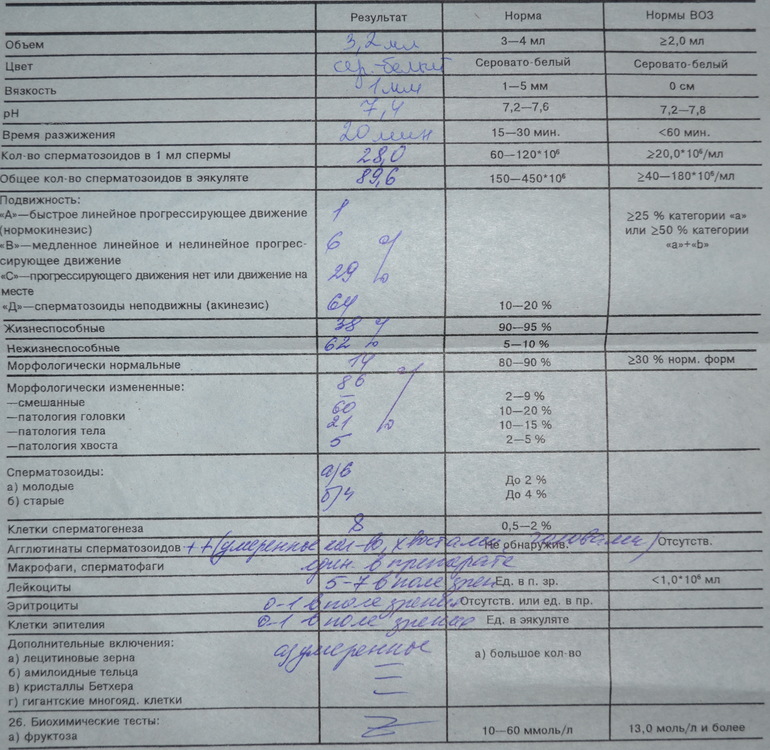 Результат Норма Нормы ВОЗ
Объем 3,2 мл 3—4 мл ≥2,0 мл
Цвет сер.-белый Серовато-белый Серовато-белый
Вязкость 1 мм 1—5 мм 0 см
pH 7,4 7,2—7,6 7,2—7,8
Время разжижения 20 мин 15—30 мин. <60 мин.
Кол-во сперматозоидов в 1 мл спермы 28,0 60—120*10⁶ ≥20,0*10⁶/мл
Общее кол-во сперматозоидов в эякуляте 89,6 150—450*10⁶ ≥40—180*10⁶/мл
Подвижность:
«А»—быстрое линейное прогрессирующее движение 1 ≥25 % категории «а»
(нормокинезис) или ≥50 % категории
«В»—медленное линейное и нелинейное прогрес- 6 % «а»+«b»
сирующее движение
«С»—прогрессирующего движения нет или движение на 29
месте
«Д»—сперматозоиды неподвижны (акинезис) 64 10—20 %
Жизнеспособные 38 % 90—95 %
Нежизнеспособные 62 5—10 %
Морфологически нормальные 14 80—90 % ≥30 % норм. форм
Морфологически измененные: 86 %
—смешанные – 2—9 %
—патология головки 60 10—20 %
—патология тела 21 10—15 %
—патология хвоста 5 2—5 %
Сперматозоиды: а) 6
а) молодые До 2 %
б) старые б) 4 До 4 %
Клетки сперматогенеза 8 0,5—2 %
Агглютинаты сперматозоидов ++ (умеренное кол-во, хвостами, головами) Не обнаружив. Отсутств.
Макрофаги, сперматофаги един. в препарате
Лейкоциты 5-7 в поле зрен Ед. в п. зр. <1,0*10⁶ мл
Эритроциты 0-1 в поле зрения Отсутств. или ед. в пр.
Клетки эпителия 0-1 в поле зрения Ед. в эякуляте
Дополнительные включения: а) умеренные
а) лецитиновые зерна а) большое кол-во
б) амилоидные тельца –
в) кристаллы Бетхера –
г) гигантские многояд. клетки –
26. Биохимические тесты:
а) фруктоза 10—60 ммоль/л 13,0 моль/л и более